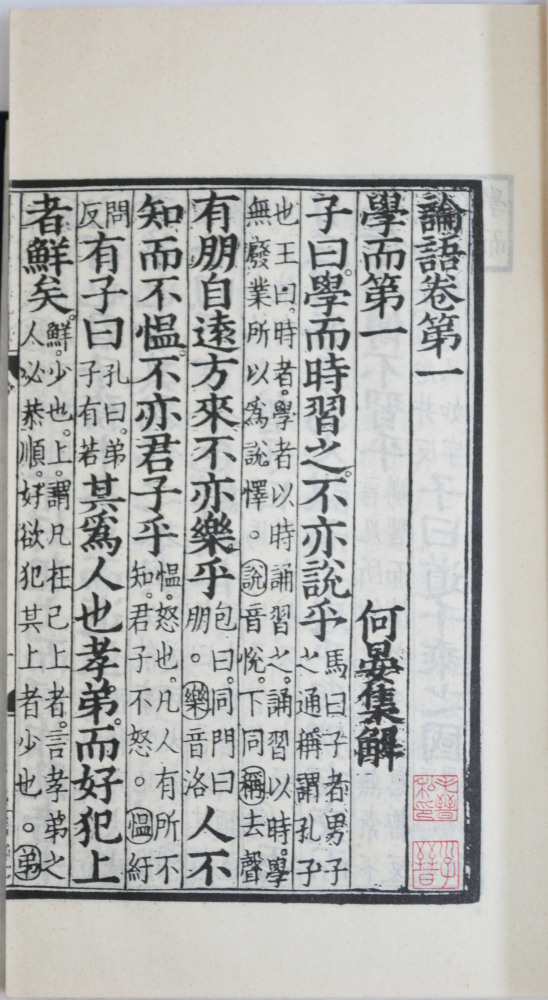 論語卷第一
學而第一 何晏集解
子曰。學而時習之。不亦說乎
馬曰子者男子
之通稱謂孔子
也王曰。時者。學者以時誦習之。誦習以時。學
無廢業所以爲說懌。說音悅。下同稱去聲
有朋自遠方來不亦樂乎
包曰。同門曰
朋。樂音洛
人不
知而不慍。不亦君子乎
慍。怒也。凡人有所不
知。君子不怒。慍紆
問
反
有子曰
孔曰。弟
子有若
其爲人也孝弟。而好犯上
者鮮矣。
鮮。少也。上。謂凡在己上者。言孝弟之
人必恭順。好欲犯其上者少也。弟
毛晉
私印
子晉